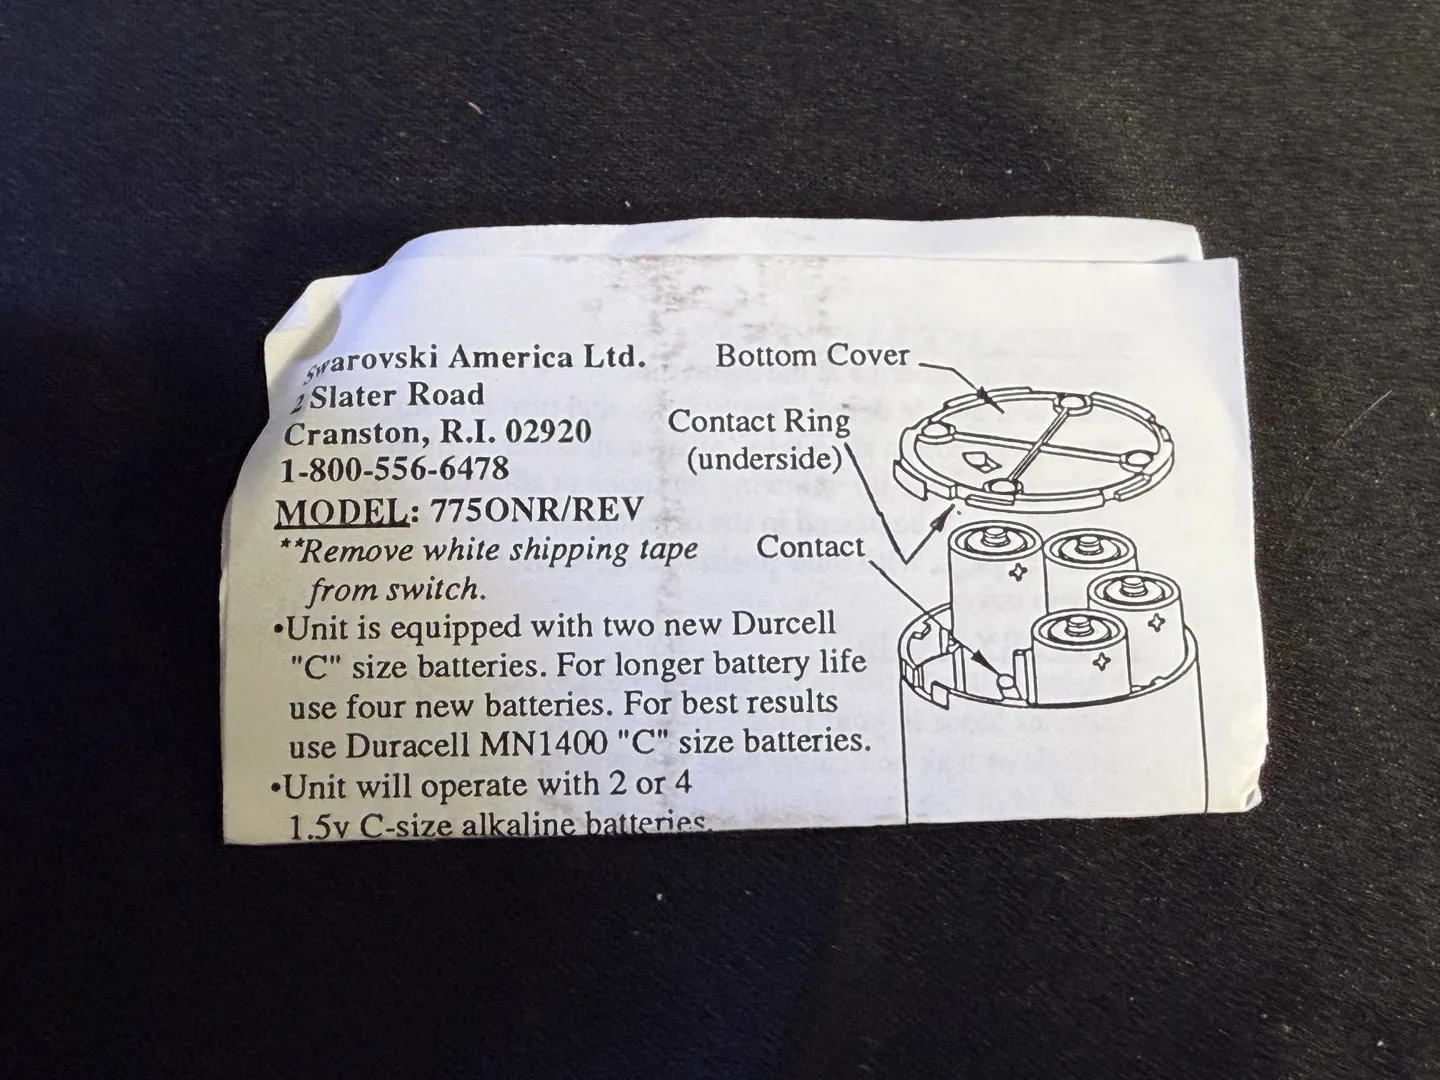 Swarovski America Ltd.
2 Slater Road
Cranston, R.I. 02920
1-800-556-6478
MODEL: 775ONR/REV
**Remove white shipping tape
from switch.
•Unit is equipped with two new Durcell
"C" size batteries. For longer battery life
use four new batteries. For best results
use Duracell MN1400 "C" size batteries.
•Unit will operate with 2 or 4
1.5v C-size alkaline batteries.
Bottom Cover
Contact Ring
(underside)
Contact